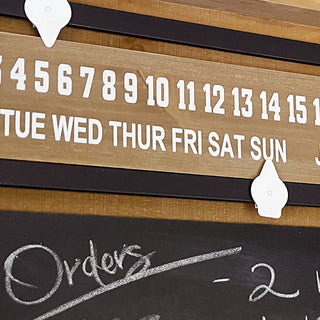 4 5 6 7 8 9 10 11 12 13 14 15
TUE WED THUR FRI SAT SUN
Orders - 2